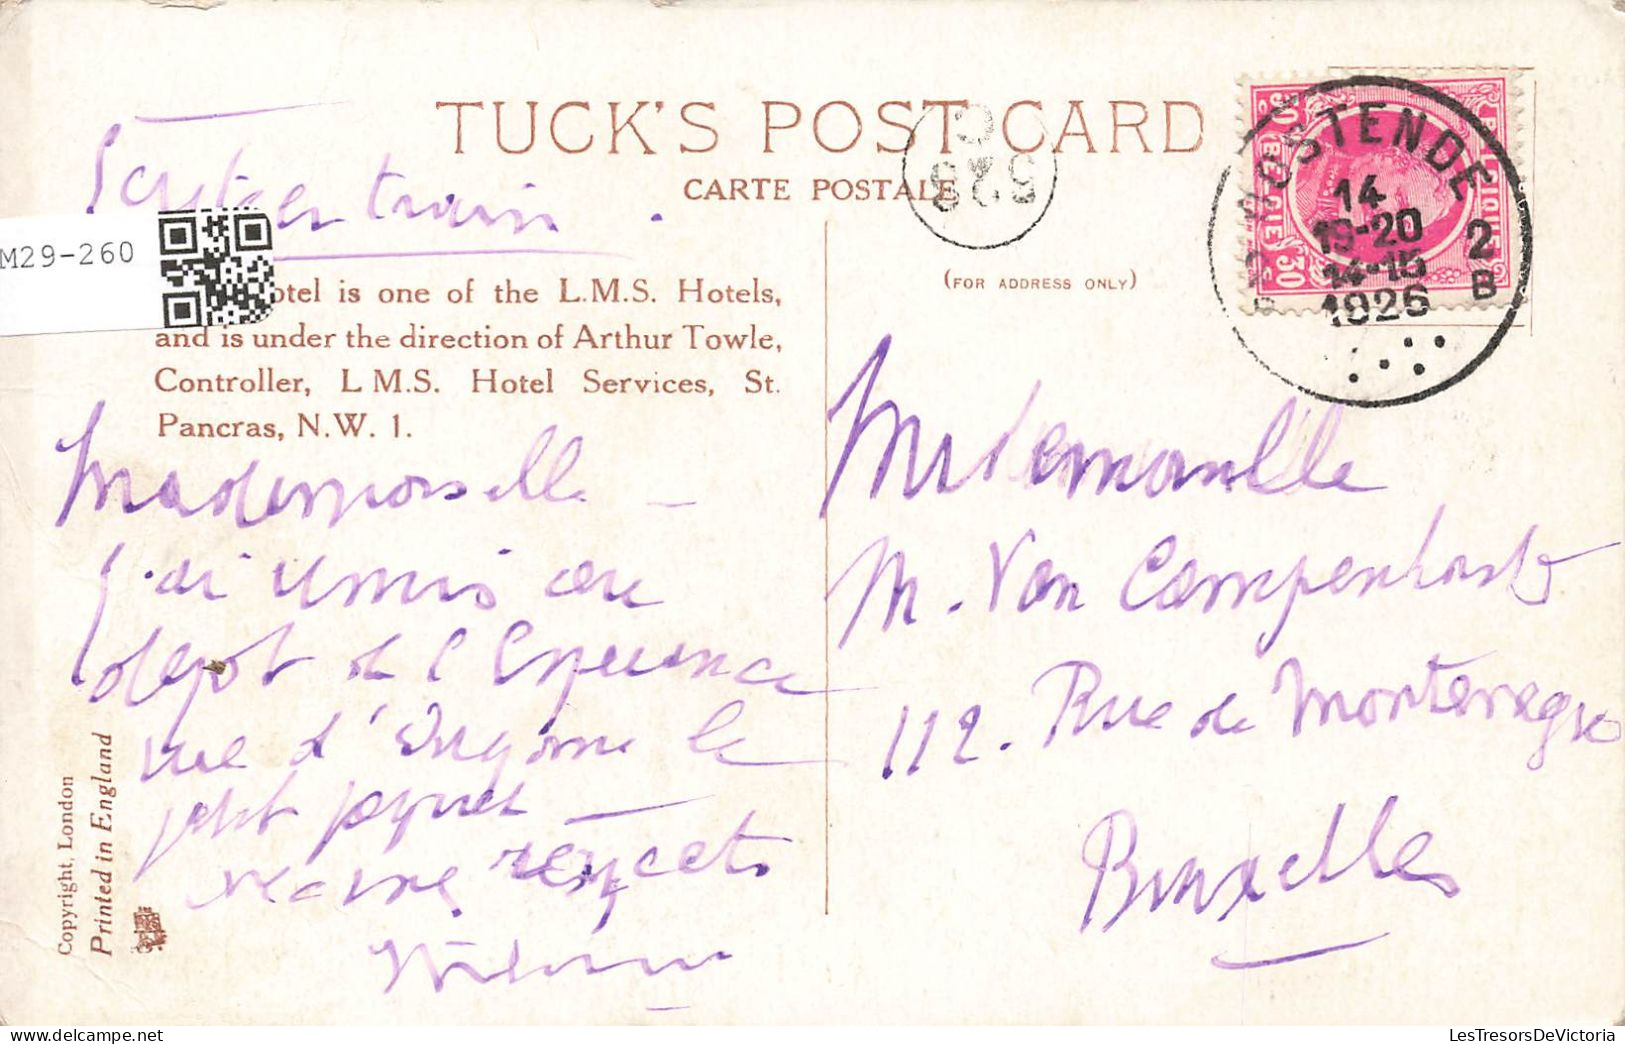 TUCK'S POST CARD
CARTE POSTALE
(FOR ADDRESS ONLY)
train
M29-260
otel is one of the L.M.S. Hotels,
and is under the direction of Arthur Towle,
Controller, L M.S. Hotel Services, St.
Pancras, N.W. 1.
Mademoiselle
j'ai remis au
dépôt de l'Espérance
rue d'
petit paquet
respects
Copyright, London
Printed in England
OSTENDE
14
19-20
14-15
1926
2
B
BELGIQUE
BELGIE
30
30
Mademoiselle
M. Van Campenhout
112. Rue de Montenegro
Bruxelles
LesTresorsDeVictoria